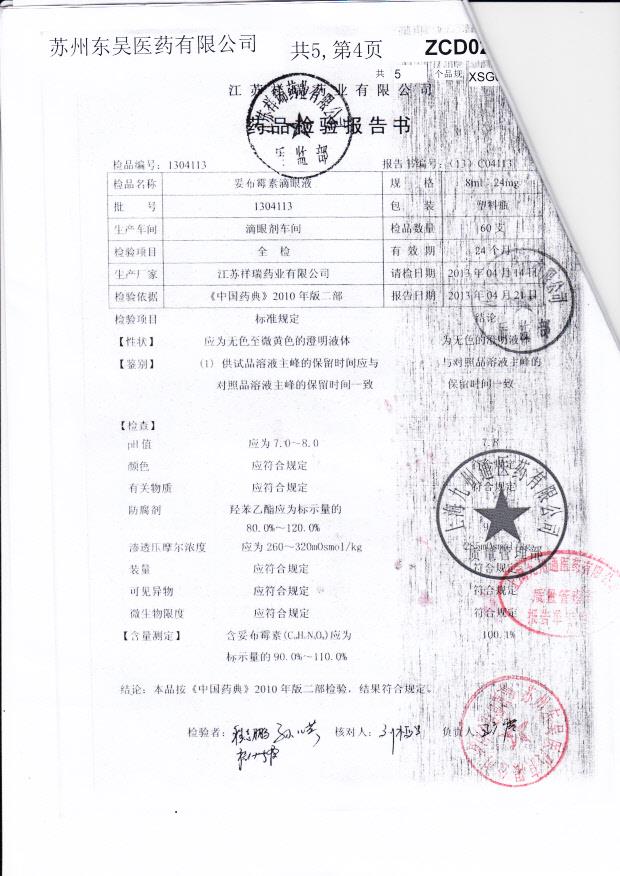 苏州东吴医药有限公司 共5,第4页 ZCD02
共 5 个品规 XSG
江苏祥瑞药业有限公司
药品检验报告书
检品编号: 1304113 报告书编号: (13) C04113
检品名称 妥布霉素滴眼液 规 格 8ml:24mg
批 号 1304113 包 装 塑料瓶
生产车间 滴眼剂车间 检品数量 60支
检验项目 全 检 有 效 期 24个月
生产厂家 江苏祥瑞药业有限公司 请检日期 2013年04月14日
检验依据 《中国药典》2010年版二部 报告日期 2013年04月21日
检验项目 标准规定 结论
【性状】 应为无色至微黄色的澄明液体 为无色的澄明液体
【鉴别】 (1) 供试品溶液主峰的保留时间应与 与对照品溶液主峰的
对照品溶液主峰的保留时间一致 保留时间一致
【检查】
pH值 应为7.0~8.0 7.8
颜色 应符合规定 符合规定
有关物质 应符合规定 符合规定
防腐剂 羟苯乙酯应为标示量的
80.0%~120.0%
渗透压摩尔浓度 应为260~320mOsmol/kg
装量 应符合规定 符合规定
可见异物 应符合规定 符合规定
微生物限度 应符合规定 符合规定
【含量测定】 含妥布霉素(C₁₈H₃₇N₅O₉)应为 100.1%
标示量的90.0%~110.0%
结论: 本品按《中国药典》2010年版二部检验, 结果符合规定。
检验者: 核对人: 负责人:
上海九州通医药有限公司
质量管理部